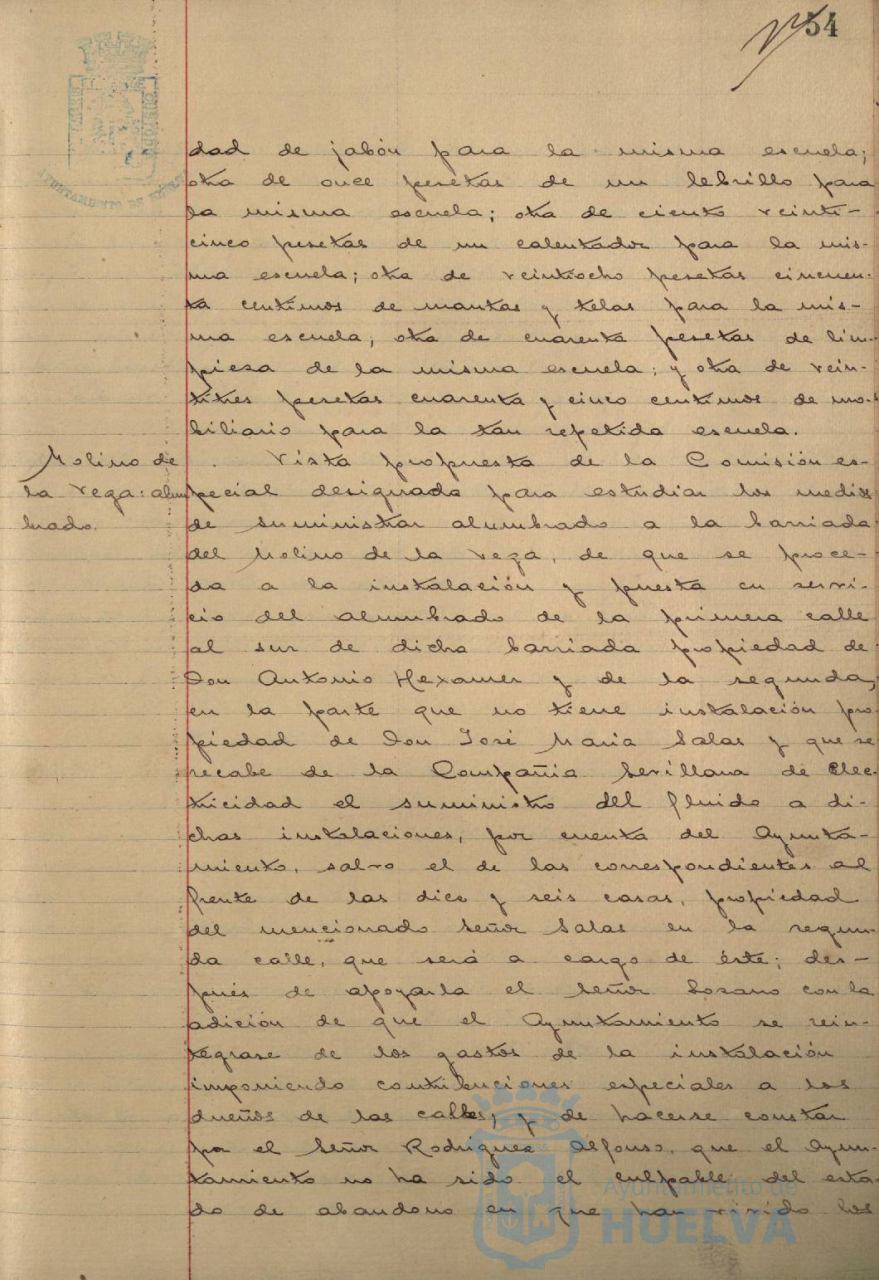 54
dad de jabón para la misma escuela;
otra de once pesetas de un lebrillo para
la misma escuela; otra de ciento veinti-
cinco pesetas de un calentador para la mis-
ma escuela; otra de veintiocho pesetas cincuen-
ta centimos de mantas y telas para la mis-
ma escuela; otra de cuarenta pesetas de lim-
pieza de la misma escuela; y otra de vein-
titres pesetas cuarenta y cinco centimos de mo-
biliario para la tan repetida escuela.
Molino de
la Vega: alum
brado.
Vista propuesta de la Comisión es-
pecial designada para estudiar los medios
de suministrar alumbrado a la barriada
del Molino de la Vega, de que se proce-
da a la instalación y puesta en servi-
cio del alumbrado de la primera calle
al sur de dicha barriada propiedad de
Don Antonio Hexamer y de la segunda,
en la parte que no tiene instalación pro
piedad de Don José Maria Salas y que se
recabe de la Compañia Sevillana de Elec-
tricidad el suministro del fluido a di-
chas instalaciones, por cuenta del Ayunta-
miento, salvo el de las correspondientes al
frente de las diez y seis casas, propiedad
del mencionado Señor Salas en la segun-
da calle, que será a cargo de éste; des-
pués de apoyarla el Señor Lozano con la
adición de que el Ayuntamiento se rein-
tegrase de los gastos de la instalación
imponiendo contribuciones especiales a los
dueños de las calles, y de hacerse constar
por el Señor Rodriguez Alfonso, que el Ayun-
tamiento no ha sido el culpable del esta-
do de abandono en que han vivido los
Ayuntamiento de
HUELVA